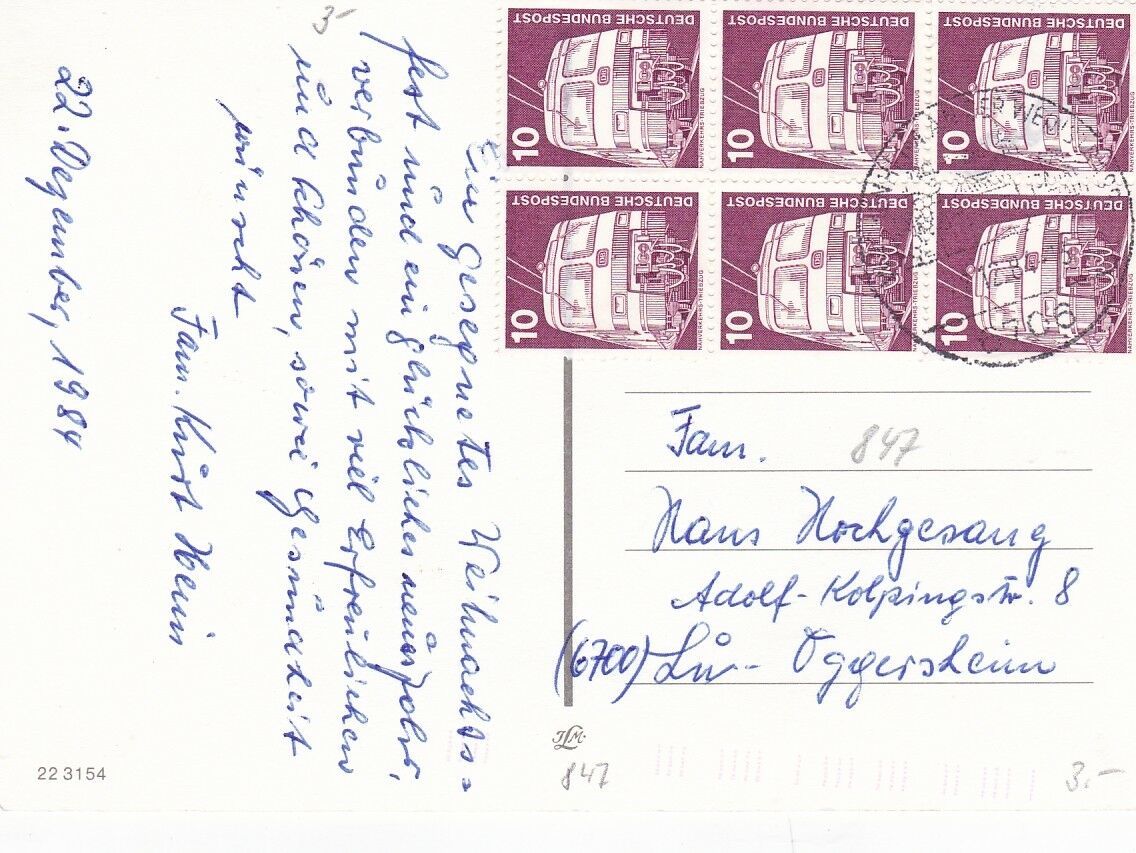 Ein gesegnetes Weihnachts-
fest und ein glückliches neues Jahr,
verbunden mit viel Erfreulichen
und Schönen, sowie Gesundheit
wünscht
Fam. Kurt
22. Dezember, 1984
3.-
DEUTSCHE BUNDESPOST
10
NAHVERKEHRS-TRIEBZUG
DEUTSCHE BUNDESPOST
10
NAHVERKEHRS-TRIEBZUG
DEUTSCHE BUNDESPOST
10
NAHVERKEHRS-TRIEBZUG
DEUTSCHE BUNDESPOST
10
NAHVERKEHRS-TRIEBZUG
DEUTSCHE BUNDESPOST
10
NAHVERKEHRS-TRIEBZUG
DEUTSCHE BUNDESPOST
10
NAHVERKEHRS-TRIEBZUG
Fam.
847
Hans Hochgesang
Adolf-Kolpingstr. 8
(6700) Lu- Oggersheim
22 3154
847
3.-